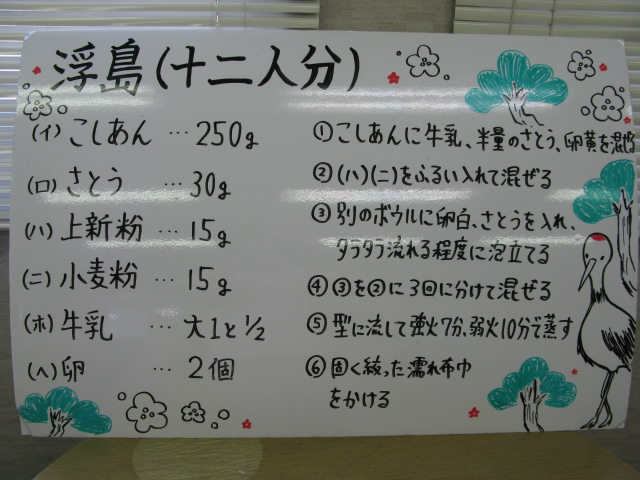 浮島(十二人分)
(イ) こしあん … 250g
(ロ) さとう … 30g
(ハ) 上新粉 … 15g
(ニ) 小麦粉 … 15g
(ホ) 牛乳 … 大1と1/2
(ヘ) 卵 … 2個
① こしあんに牛乳、半量のさとう、卵黄を混ぜる
② (ハ)(ニ)をふるい入れて混ぜる
③ 別のボウルに卵白、さとうを入れ、
タラタラ流れる程度に泡立てる
④ ③を②に3回に分けて混ぜる
⑤ 型に流して強火7分、弱火10分で蒸す
⑥ 固く絞った濡れ布巾
をかける